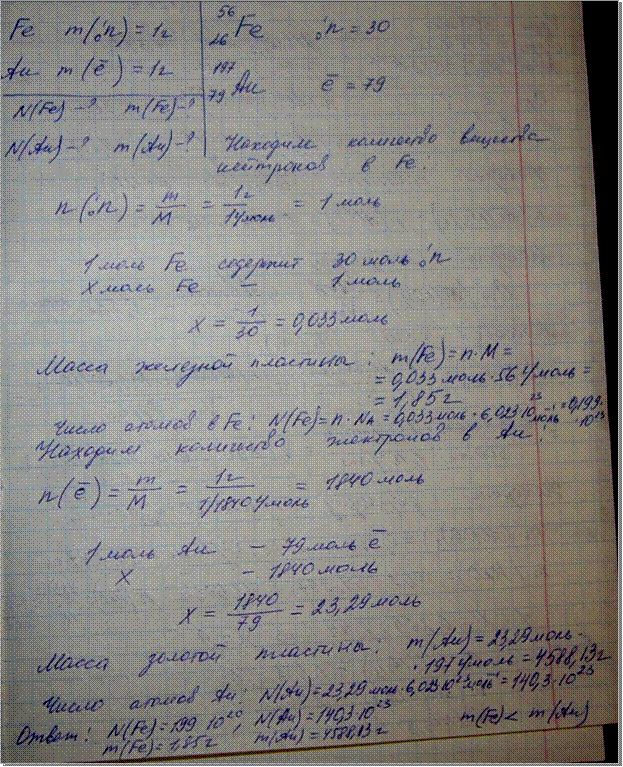 Fe m(₀¹n) = 1г ⁵⁶₂₆Fe ₀¹n = 30
Au m(ē) = 1г ¹⁹⁷₇₉Au ē = 79
N(Fe) - ? m(Fe) - ?
N(Au) - ? m(Au) - ? Находим количество вещества
нейтронов в Fe:
n(₀¹n) = m/M = 1г/1г/моль = 1 моль
1 моль Fe содержит 30 моль ₀¹n
x моль Fe — 1 моль
x = 1/30 = 0,033 моль
Масса железной пластины: m(Fe) = n·M =
= 0,033 моль · 56 г/моль =
= 1,85 г
Число атомов в Fe: N(Fe) = n·Nᴀ = 0,033 моль · 6,023·10²³ моль⁻¹ = 0,199·10²³
Находим количество электронов в Au:
n(ē) = m/M = 1г/1/1840 г/моль = 1840 моль
1 моль Au — 79 моль ē
x — 1840 моль
x = 1840/79 = 23,29 моль
Масса золотой пластины: m(Au) = 23,29 моль ·
· 197 г/моль = 4588,13 г
Число атомов Au: N(Au) = 23,29 моль · 6,023·10²³ моль⁻¹ = 140,3·10²³
Ответ: N(Fe) = 199·10²⁰, N(Au) = 140,3·10²³
m(Fe) = 1,85 г m(Au) = 4588,13 г m(Fe) < m(Au)